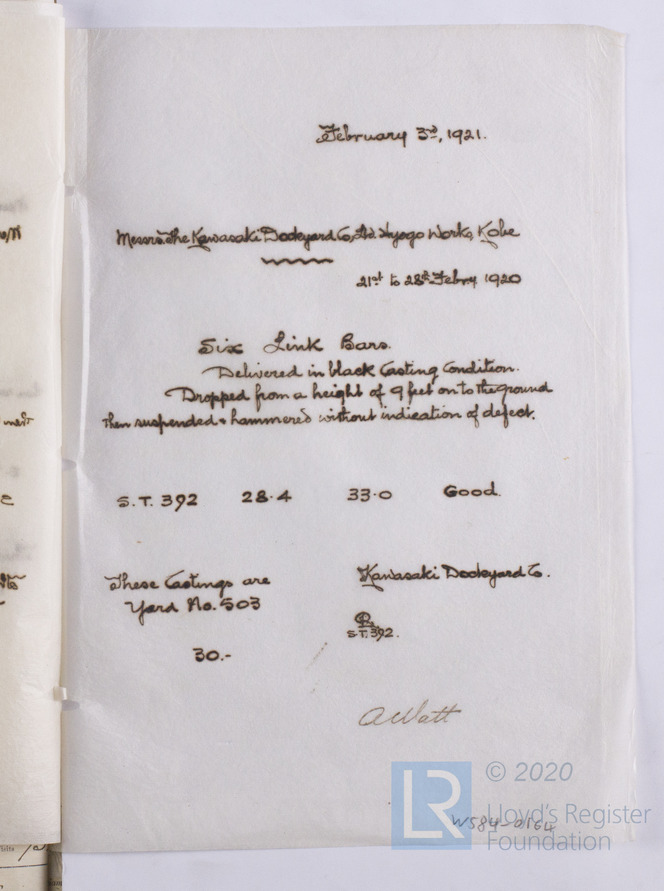 February 3rd, 1921.
Messrs. The Kawasaki Dockyard Co., Ltd. Hyogo Works, Kobe
21st to 28th Febry 1920
Six Link Bars.
Delivered in black Casting Condition.
Dropped from a height of 9 feet on to the ground
then suspended & hammered without indication of defect.
S.T. 392 28.4 33.0 Good.
These Castings are
Yard No. 503
30.-
Kawasaki Dockyard Co.
S.T. 392.
A Watt
W584-0164
LR © 2020
Lloyd's Register
Foundation